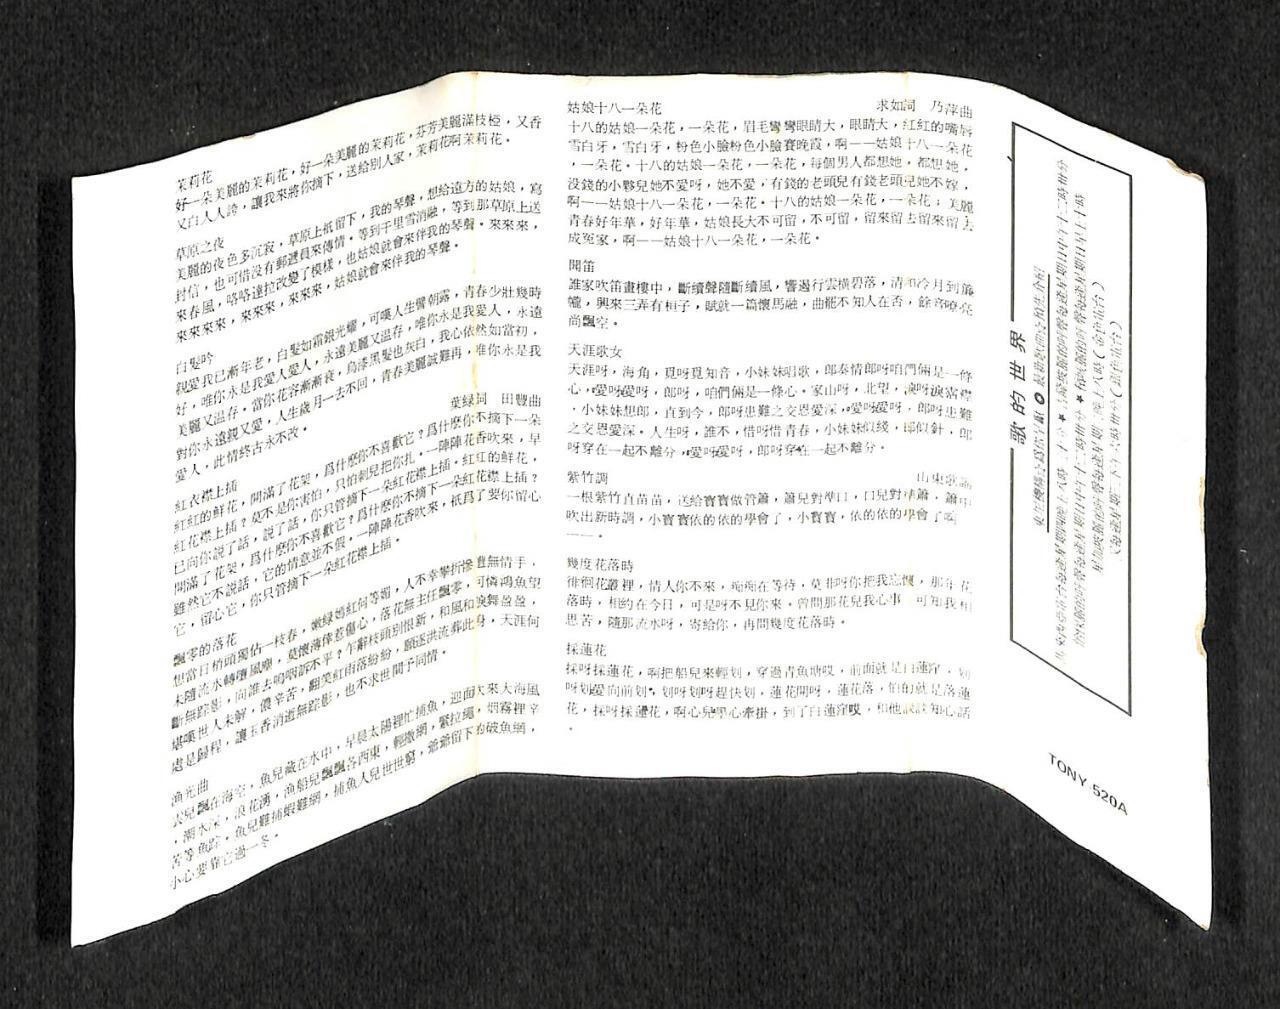 茉莉花
好一朵美麗的茉莉花，好一朵美麗的茉莉花，芬芳美麗滿枝椏，又香
又白人人誇，讓我來將你摘下，送給別人家，茉莉花啊茉莉花。
草原之夜
美麗的夜色多沉寂，草原上衹留下，我的琴聲，想給遠方的姑娘，寫
封信，也可惜沒有郵遞員來傳情。等到千里雪消融，等到那草原上送
來春風，咯咯達拉改變了模樣，也姑娘就會來伴我的琴聲。來來來，
來來來來，來來來，來來來，姑娘就會來伴我的琴聲。
白髮吟
親愛我已漸年老，白髮如霜銀光耀，可嘆人生譬朝露，青春少壯幾時
好，唯你永是我愛人愛人，永遠美麗又温存，唯你永是我愛人，永遠
美麗又温存。當你花容漸漸衰，烏漆黑髮也灰白，我心依然如當初，
對你永遠親又愛，人生歲月一去不回，青春美麗誠難再，唯你永是我
愛人，此情終古永不改。
紅衣襟上插 葉綠詞 田豐曲
紅紅的鮮花，開滿了花架，爲什麼你不喜歡它？爲什麼你不摘下一朵
紅花襟上插？莫不是你害怕，只怕刺兒把你扎。一陣陣花香吹來，早
已向你説了話，説了話，你只管摘下一朵紅花襟上插。紅紅的鮮花，
開滿了花架，爲什麼你不喜歡它？爲什麼你不摘下一朵紅花襟上插？
雖然它不説話，它的情意並不假。一陣陣花香吹來，衹爲了要你留心
它，留心它，你只管摘下一朵紅花襟上插。
飄零的落花
想當日梢頭獨佔一枝春，嫩綠嫣紅何等媚，人不幸攀折慘遭無情手，
未隨流水轉墮風塵，莫懷薄倖惹傷心，落花無主任飄零，可憐鴻魚望
斷無踪影，向誰去嗚咽訴不平？乍辭枝頭別恨新，和風和淚舞盈盈，
堪嘆世人未解，儂辛苦，翻笑紅雨落紛紛，願逐洪流葬此身，天涯何
處是歸程，讓玉香消逝無踪影，也不求世間予同情。
漁光曲
雲兒飄在海空，魚兒藏在水中，早晨太陽裡忙捕魚，迎面吹來大海風
，潮水深，浪花湧，漁船兒飄飄各西東，輕撒網，緊拉繩，烟霧裡辛
苦等魚踪。魚兒難捕蝦難網，捕魚人兒世世窮，爺爺留下的破魚網，
小心要靠它過一冬。
姑娘十八一朵花 求如詞 乃萍曲
十八的姑娘一朵花，一朵花，眉毛彎彎眼睛大，眼睛大，紅紅的嘴唇
雪白牙，雪白牙，粉色小臉粉色小臉賽晚霞，啊——姑娘十八一朵花
，一朵花。十八的姑娘一朵花，一朵花，每個男人都想她，都想她，
沒錢的小夥兒她不愛呀，她不愛，有錢的老頭兒有錢老頭兒她不嫁，
啊——姑娘十八一朵花，一朵花。十八的姑娘一朵花，一朵花，美麗
青春好年華，好年華，姑娘長大不可留，不可留，留來留去留來留去
成冤家，啊——姑娘十八一朵花，一朵花。
聞笛
誰家吹笛畫樓中，斷續聲隨斷續風，響遏行雲橫碧落，清和冷月到簾
櫳，興來三弄有桓子，賦就一篇懷馬融，曲罷不知人在否，餘音嘹亮
尚飄空。
天涯歌女
天涯呀，海角，覓呀覓知音，小妹妹唱歌，郎奏情郎呀咱們倆是一條
心，愛呀愛呀，郎呀，咱們倆是一條心。家山呀，北望，淚呀淚霑襟
，小妹妹想郎，直到今，郎呀患難之交恩愛深，愛呀愛呀，郎呀患難
之交恩愛深。人生呀，誰不，惜呀惜青春，小妹妹似綫，郎似針，郎
呀穿在一起不離分，愛呀愛呀，郎呀穿在一起不離分。
紫竹調 山東歌謠
一根紫竹直苗苗，送給寶寶做管簫，簫兒對準口，口兒對準簫，簫中
吹出新時調，小寶寶依的依的學會了，小寶寶，依的依的學會了啊
——。
幾度花落時
徘徊花叢裡，情人你不來，痴痴在等待，莫非呀你把我忘懷，那年花
落時，相約在今日，可是呀不見你來。曾問那花兒我心事，可知我相
思苦，隨那流水呀，寄給你，再問幾度花落時。
採蓮花
採呀採蓮花，啊把船兒來輕划，穿過青魚塘哎，前面就是白蓮窪，划
呀划愛向前划，划呀划呀趕快划，蓮花開呀，蓮花落，怕的就是落蓮
花，採呀採蓮花，啊心兒里心牽掛，到了白蓮窪哎，和他談談知心話
。
歌的世界
TONY 520A